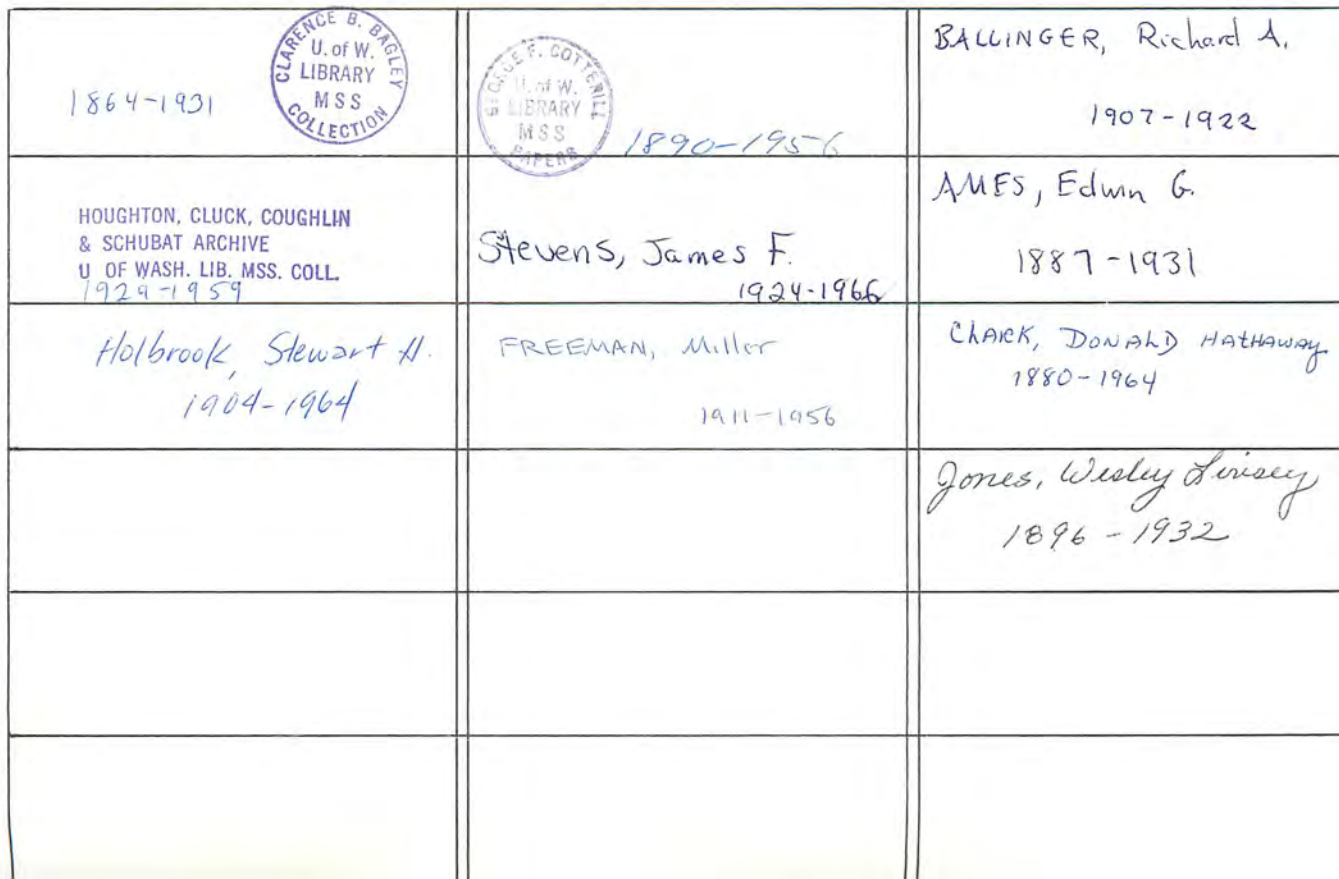 CLARENCE B. BAGLEY
U. of W.
LIBRARY
MSS
COLLECTION
1864-1931
GEORGE F. COTTERILL
U. of W.
LIBRARY
MSS
PAPERS
1890-1956
BALLINGER, Richard A.
1907-1922
HOUGHTON, CLUCK, COUGHLIN
& SCHUBAT ARCHIVE
U OF WASH. LIB. MSS. COLL.
1929-1959
Stevens, James F.
1924-1966
AMES, Edwin G.
1887-1931
Holbrook, Stewart H.
1904-1964
FREEMAN, Miller
1911-1956
CLARK, DONALD HATHAWAY
1880-1964
Jones, Wesley
1896-1932